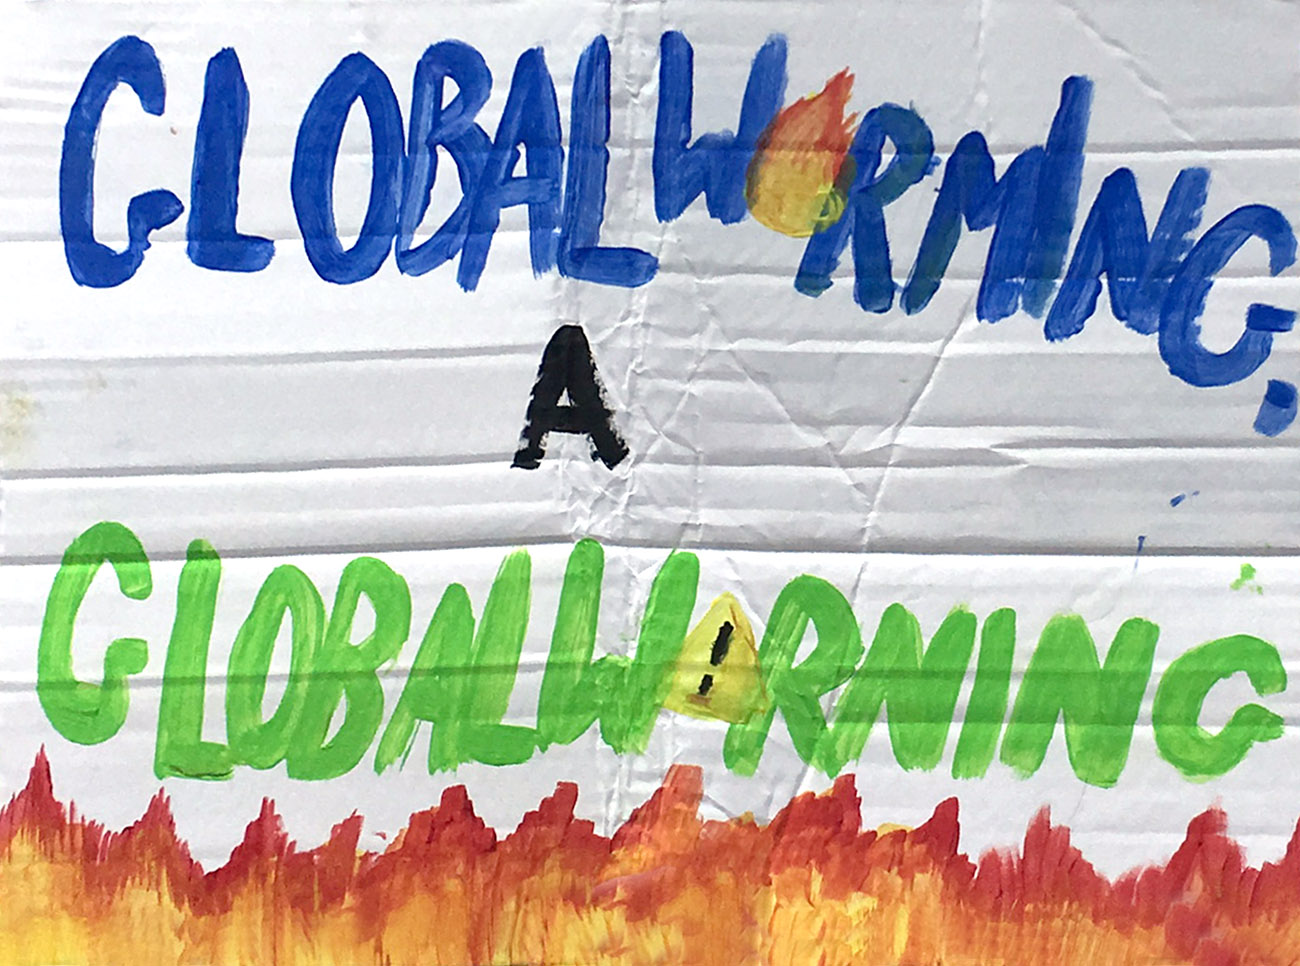 GLOBAL WARMING,
A
GLOBAL WARNING